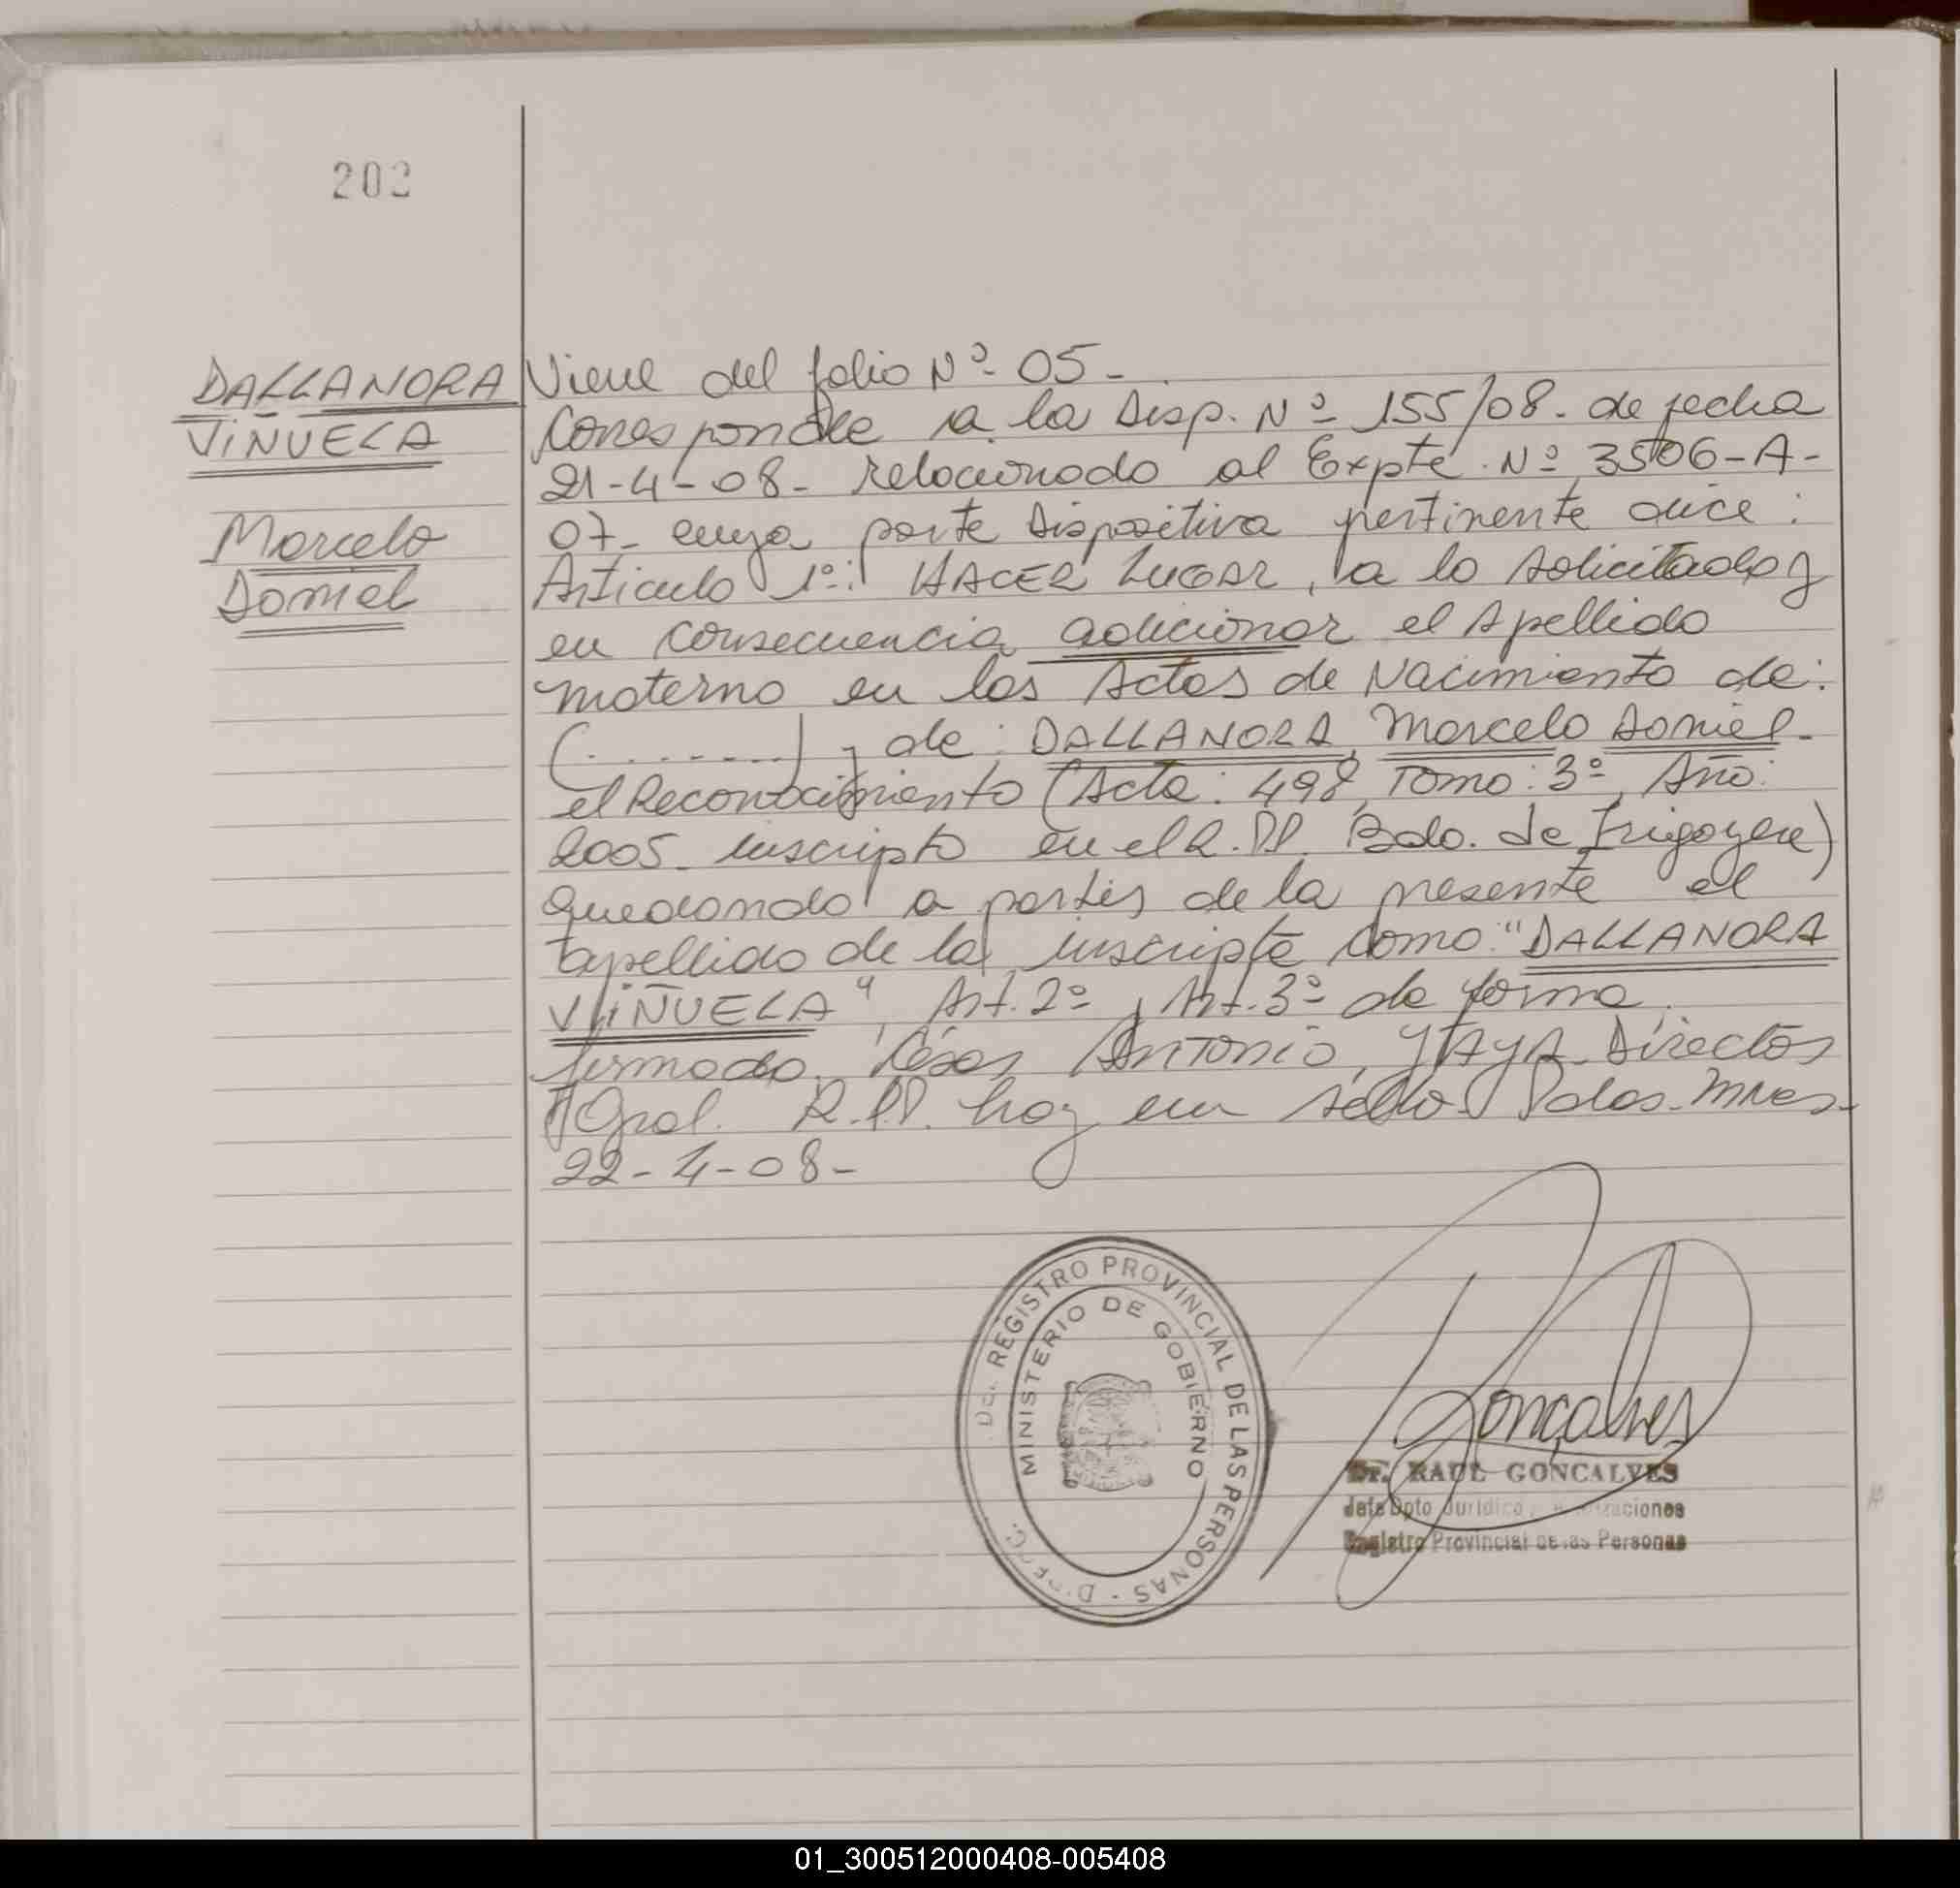 202
DALLANORA
VIÑUELA
Marcelo
Daniel
Viene del folio Nº 05-
Corresponde a la Disp. Nº 155/08- de fecha
21-4-08- relacionado al Expte. Nº 3506-A-
07- cuya parte dispositiva pertinente dice:
Articulo 1º: HACER LUGAR, a lo solicitado y
en consecuencia adicionar el Apellido
materno en las Actas de Nacimiento de:
(.......) y de: DALLANORA, Marcelo Daniel-
el Reconocimiento (Acta: 498, Tomo: 3º, Año:
2005- inscripto en el R.PP. Bdo. de Irigoyen)
quedando a partir de la presente el
apellido de la inscripta como: "DALLANORA
VIÑUELA", Art. 2º y Art. 3º de forma.
firmado. César Antonio, YAYA- Director
Gral. R.PP. hay un sello- Pdas-Mnes-
22-4-08-
REGISTRO PROVINCIAL DE LAS PERSONAS
MINISTERIO DE GOBIERNO
Gonçalves
Dr. RAUL GONCALVES
Jefe Dpto Juridico
Registro Provincial de las Personas
01_300512000408-005408